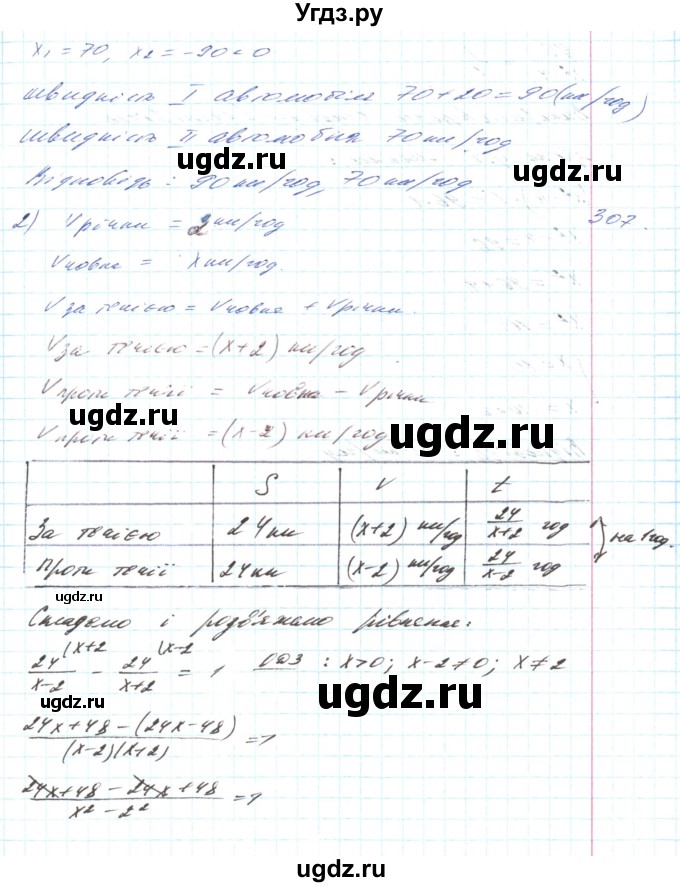 Угдз.ру
x₁ = 70, x₂ = -90 < 0
швидкість I автомобіля 70+20=90(км/год)
швидкість II автомобіля 70 км/год
Відповідь: 90 км/год, 70 км/год.
ugdz.ru
2) V річки = 2 км/год 307.
V човна = x км/год.
ugdz.ru
V за течією = V човна + V річки.
V за течією = (x+2) км/год.
V проти течії = V човна - V річки
V проти течії = (x-2) км/год
ugdz.ru
ugdz.ru
S V t
За течією 24 км (x+2) км/год 24/(x+2) год
на 1 год.
Проти течії 24 км (x-2) км/год 24/(x-2) год
ugdz.ru
Складемо і розв'яжемо рівняння:
24/(x-2) (x+2 - 24/(x+2) (x-2 = 1 ОДЗ: x>0; x-2≠0; x≠2
ugdz.ru
ugdz.ru
(24x+48-(24x-48))/((x-2)(x+2)) = 1
(24x+48-24x+48)/(x²-2²) = 1
ugdz.ru
ugdz.ru